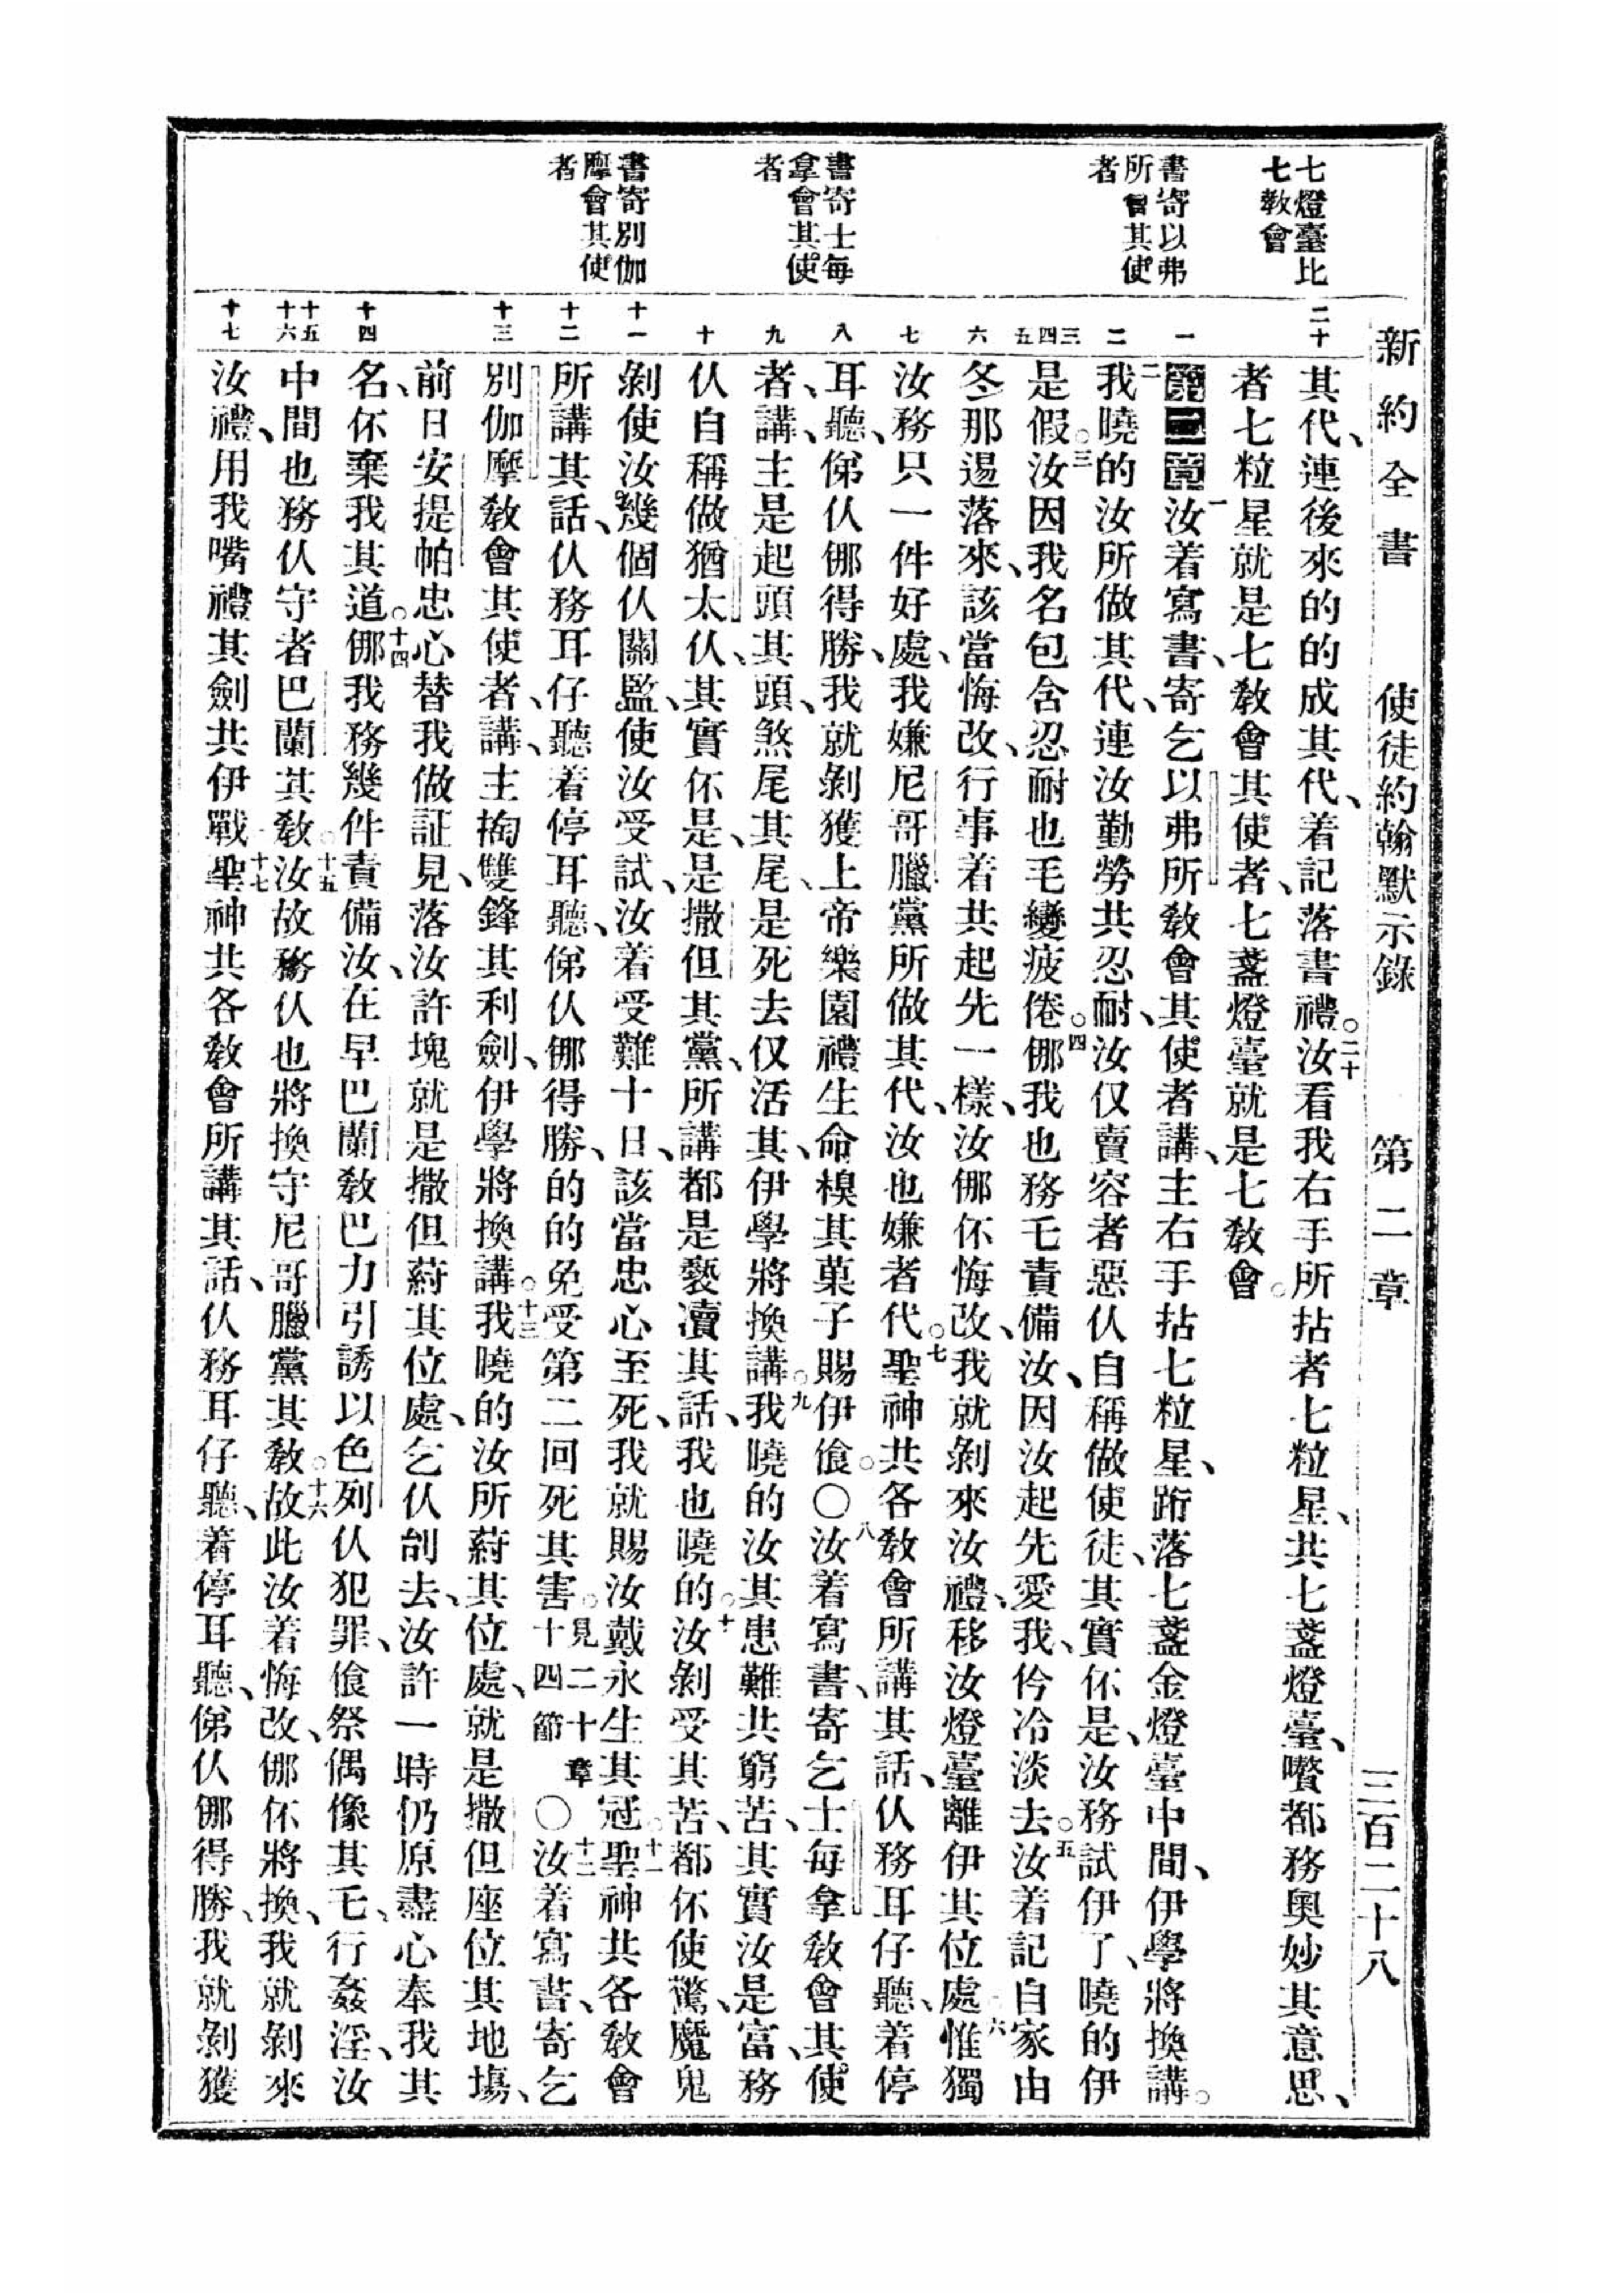 新約全書　使徒約翰默示錄　第二章　三百二十八
七燈臺比
七教會
書寄以弗
所會其使
者
書寄士每
拿會其使
者
書寄別伽
摩會其使
者
二十
一
二
三
四
五
六
七
八
九
十
十一
十二
十三
十四
十五
十六
十七
其代、連後來的的成其代、着記落書禮。二十汝看我右手所拈者七粒星、共七盞燈臺、嚽都務奧妙其意思、
者七粒星就是七教會其使者、七盞燈臺就是七教會。
第二章一汝着寫書、寄乞以弗所教會其使者講、主右手拈七粒星、跨落七盞金燈臺中間、伊學將換講。
二我曉的汝所做其代、連汝勤勞共忍耐、汝仅賣容者惡仈、自稱做使徒、其實伓是、汝務試伊了、曉的伊
是假。三汝因我名包含忍耐也毛變疲倦。四倻我也務乇責備汝、因汝起先愛我、仱冷淡去。五汝着記自家由
冬那逿落來、該當悔改、行事着共起先一樣、汝倻伓悔改、我就剝來汝禮、移汝燈臺離伊其位處。六惟獨
汝務只一件好處、我嫌尼哥臘黨所做其代、汝也嫌者代。七聖神共各教會所講其話、仈務耳仔聽、着停
耳聽、俤仈倻得勝、我就剝獲上帝樂園禮生命樹其菓子賜伊飡。〇八汝着寫書、寄乞士每拿教會其使
者、講、主是起頭其頭、煞尾其尾、是死去仅活其、伊學將換講。九我曉的汝其患難共窮苦、其實汝是富、務
仈自稱做猶太仈、其實伓是、是撒但其黨、所講都是褻瀆其話、我也曉的。十汝剝受其苦、都伓使驚、魔鬼
剝使汝幾個仈關監、使汝受試、汝着受難十日、該當忠心至死、我就賜汝戴永生其冠。十一聖神共各教會
所講其話、仈務耳仔聽、着停耳聽、俤仈倻得勝、的的免受第二回死其害。見二十章十四節〇十二汝着寫書、寄乞
別伽摩教會其使者、講、主掏雙鋒其利劍、伊學將換講。十三我曉的汝所蒞其位處、就是撒但座位其地塲、
前日安提帕忠心替我做証見、落汝許塊就是撒但蒞其位處、乞仈刣去、汝許一時仍原盡心奉我其
名、伓棄我其道。十四倻我務幾件責備汝、在早巴蘭教巴力引誘以色列仈犯罪、飡祭偶像其乇、行姦淫、汝
中間也務仈守者巴蘭其教。十五汝故務仈也將換守尼哥臘黨其教。十六故此汝着悔改、倻伓將換、我就剝來
汝禮、用我嘴禮其劍共伊戰。十七聖神共各教會所講其話、仈務耳仔聽、着停耳聽、俤仈倻得勝、我就剝獲